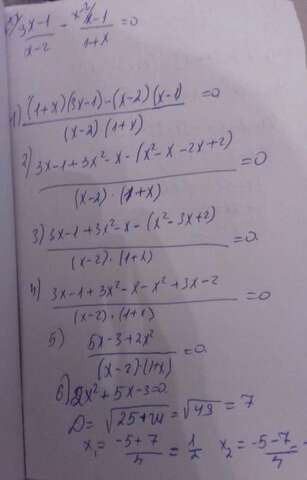 (3x-1)/(x-2) - (x-1)/(1+x) = 0
1) ((1+x)(3x-1)-(x-2)(x-1))/((x-2)(1+x)) = 0
2) (3x-1+3x²-x-(x²-x-2x+2))/((x-2)·(1+x)) = 0
3) (3x-1+3x²-x-(x²-3x+2))/((x-2)·(1+x)) = 0
4) (3x-1+3x²-x-x²+3x-2)/((x-2)·(1+x)) = 0
5) (5x-3+2x²)/((x-2)·(1+x)) = 0
6) 2x²+5x-3=0
D=√(25+24)=√49=7
x₁=(-5+7)/4=1/2 x₂=(-5-7)/4=